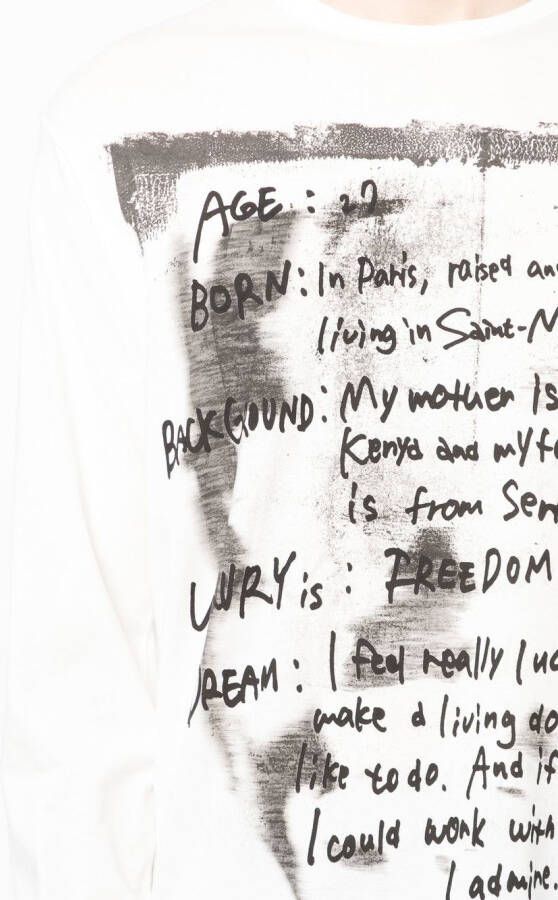 AGE: 27
BORN: In Paris, raised an
living in Saint-N
BACKGOUND: My mother Is
Kenya and my fa
is from Sen
LUXURY is: FREEDOM
DREAM: I feel really lu
make a living do
like to do. And if
I could work with
I admire.